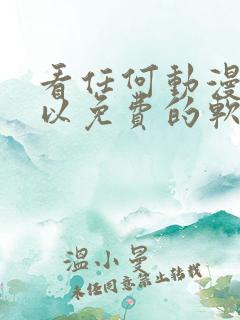 看任何動漫
以免費的軟
溫小曼
未任同意禁止轉載